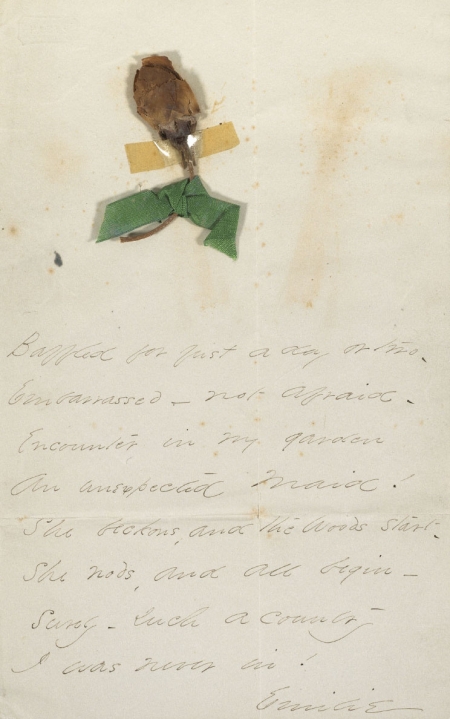 Baffled for just a day or two -
Embarrassed - not afraid -
Encounter in my garden
An unexpected Maid!
She beckons, and the Woods start -
She nods, and all begin -
Surely - such a country
I was never in!
Emilie